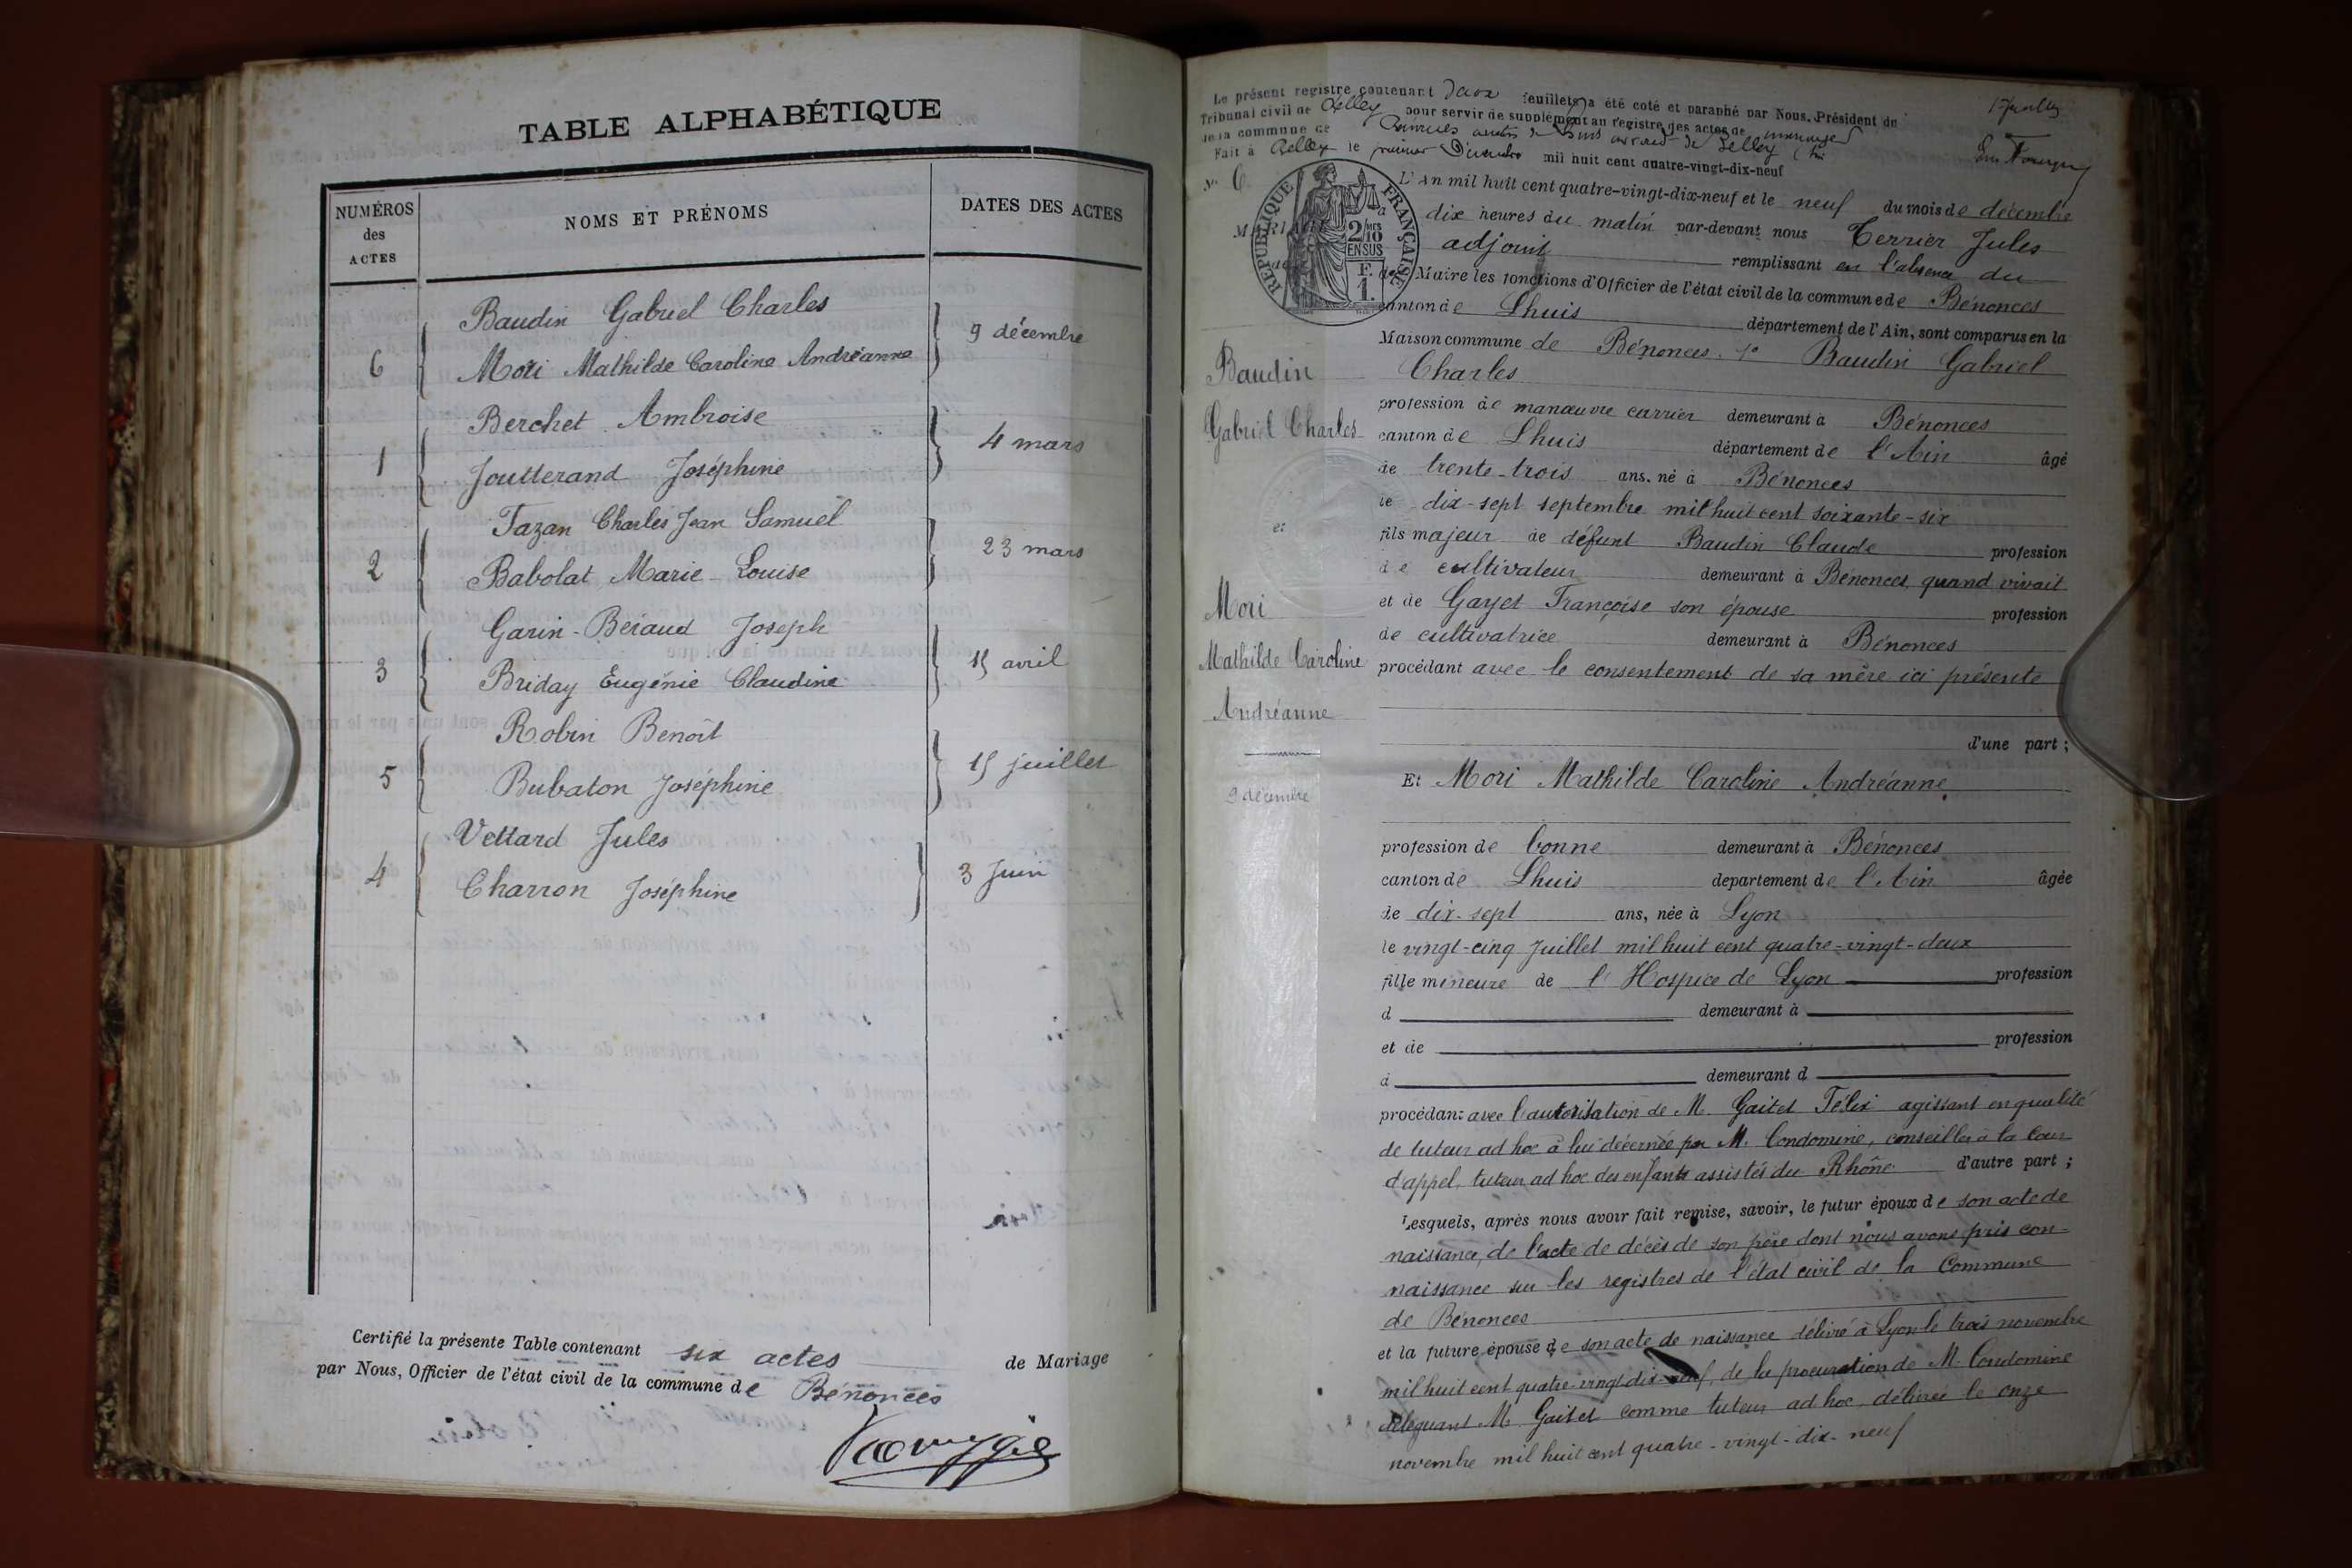 TABLE ALPHABÉTIQUE
NUMÉROS
des
ACTES
NOMS ET PRÉNOMS
DATES DES ACTES
Baudin Gabriel Charles
6 9 décembre
Mori Mathilde Caroline Andréanne
Berchet Ambroise
1 4 mars
Joutterand Joséphine
Fazan Charles Jean Samuel
2 23 mars
Babolat Marie-Louise
Garin-Béraud Joseph
3 15 avril
Briday Eugénie Claudine
Robin Benoît
5 15 juillet
Bubaton Joséphine
Vettard Jules
4 3 Juin
Charron Joséphine
Certifié la présente Table contenant six actes de Mariage
par Nous, Officier de l'état civil de la commune de Bénonces
Le présent registre contenant deux feuillets a été coté et paraphé par Nous, Président du
Tribunal civil de Belley pour servir de supplément au registre des actes de mariages
de la commune de
Fait à Belley le premier mil huit cent quatre-vingt-dix-neuf
No 6
RÉPUBLIQUE FRANÇAISE
2/10
EN SUS
F.
1.
MARIAGE
L'An mil huit cent quatre-vingt-dix-neuf et le neuf du mois de décembre
dix heures du matin par-devant nous Terrier Jules
adjoint remplissant en l'absence du
Maire les fonctions d'Officier de l'état civil de la commune de Bénonces
canton de Lhuis département de l'Ain, sont comparus en la
Maison commune de Bénonces. 1° Baudin Gabriel
Charles
profession de manœuvre carrier demeurant à Bénonces
canton de Lhuis département de l'Ain âgé
de trente-trois ans, né à Bénonces
le dix-sept septembre mil huit cent soixante-six
fils majeur de défunt Baudin Claude profession
de cultivateur demeurant à Bénonces, quand vivait
et de Gayet Françoise son épouse profession
de cultivatrice demeurant à Bénonces
procédant avec le consentement de sa mère ici présente
d'une part ;
Baudin
Gabriel Charles
et
Mori
Mathilde Caroline
Andréanne
9 décembre
Et Mori Mathilde Caroline Andréanne
profession de bonne demeurant à Bénonces
canton de Lhuis département de l'Ain âgée
de dix-sept ans, née à Lyon
le vingt-cinq Juillet mil huit cent quatre-vingt-deux
fille mineure de l'Hospice de Lyon profession
d demeurant à
et de profession
d demeurant à
procédant avec l'autorisation de M. Gaitet Félix agissant en qualité
de tuteur ad hoc à lui décernée par M. Condomine, conseiller à la Cour
d'appel, tuteur ad hoc des enfants assistés du Rhône d'autre part ;
Lesquels, après nous avoir fait remise, savoir, le futur époux de son acte de
naissance, de l'acte de décès de son père dont nous avons pris con-
naissance sur les registres de l'état civil de la Commune
de Bénonces
et la future épouse de son acte de naissance délivré à Lyon le trois novembre
mil huit cent quatre-vingt-dix-neuf, de la procuration de M. Condomine
déléguant M. Gaitet comme tuteur ad hoc, délivrée le onze
novembre mil huit cent quatre-vingt-dix-neuf